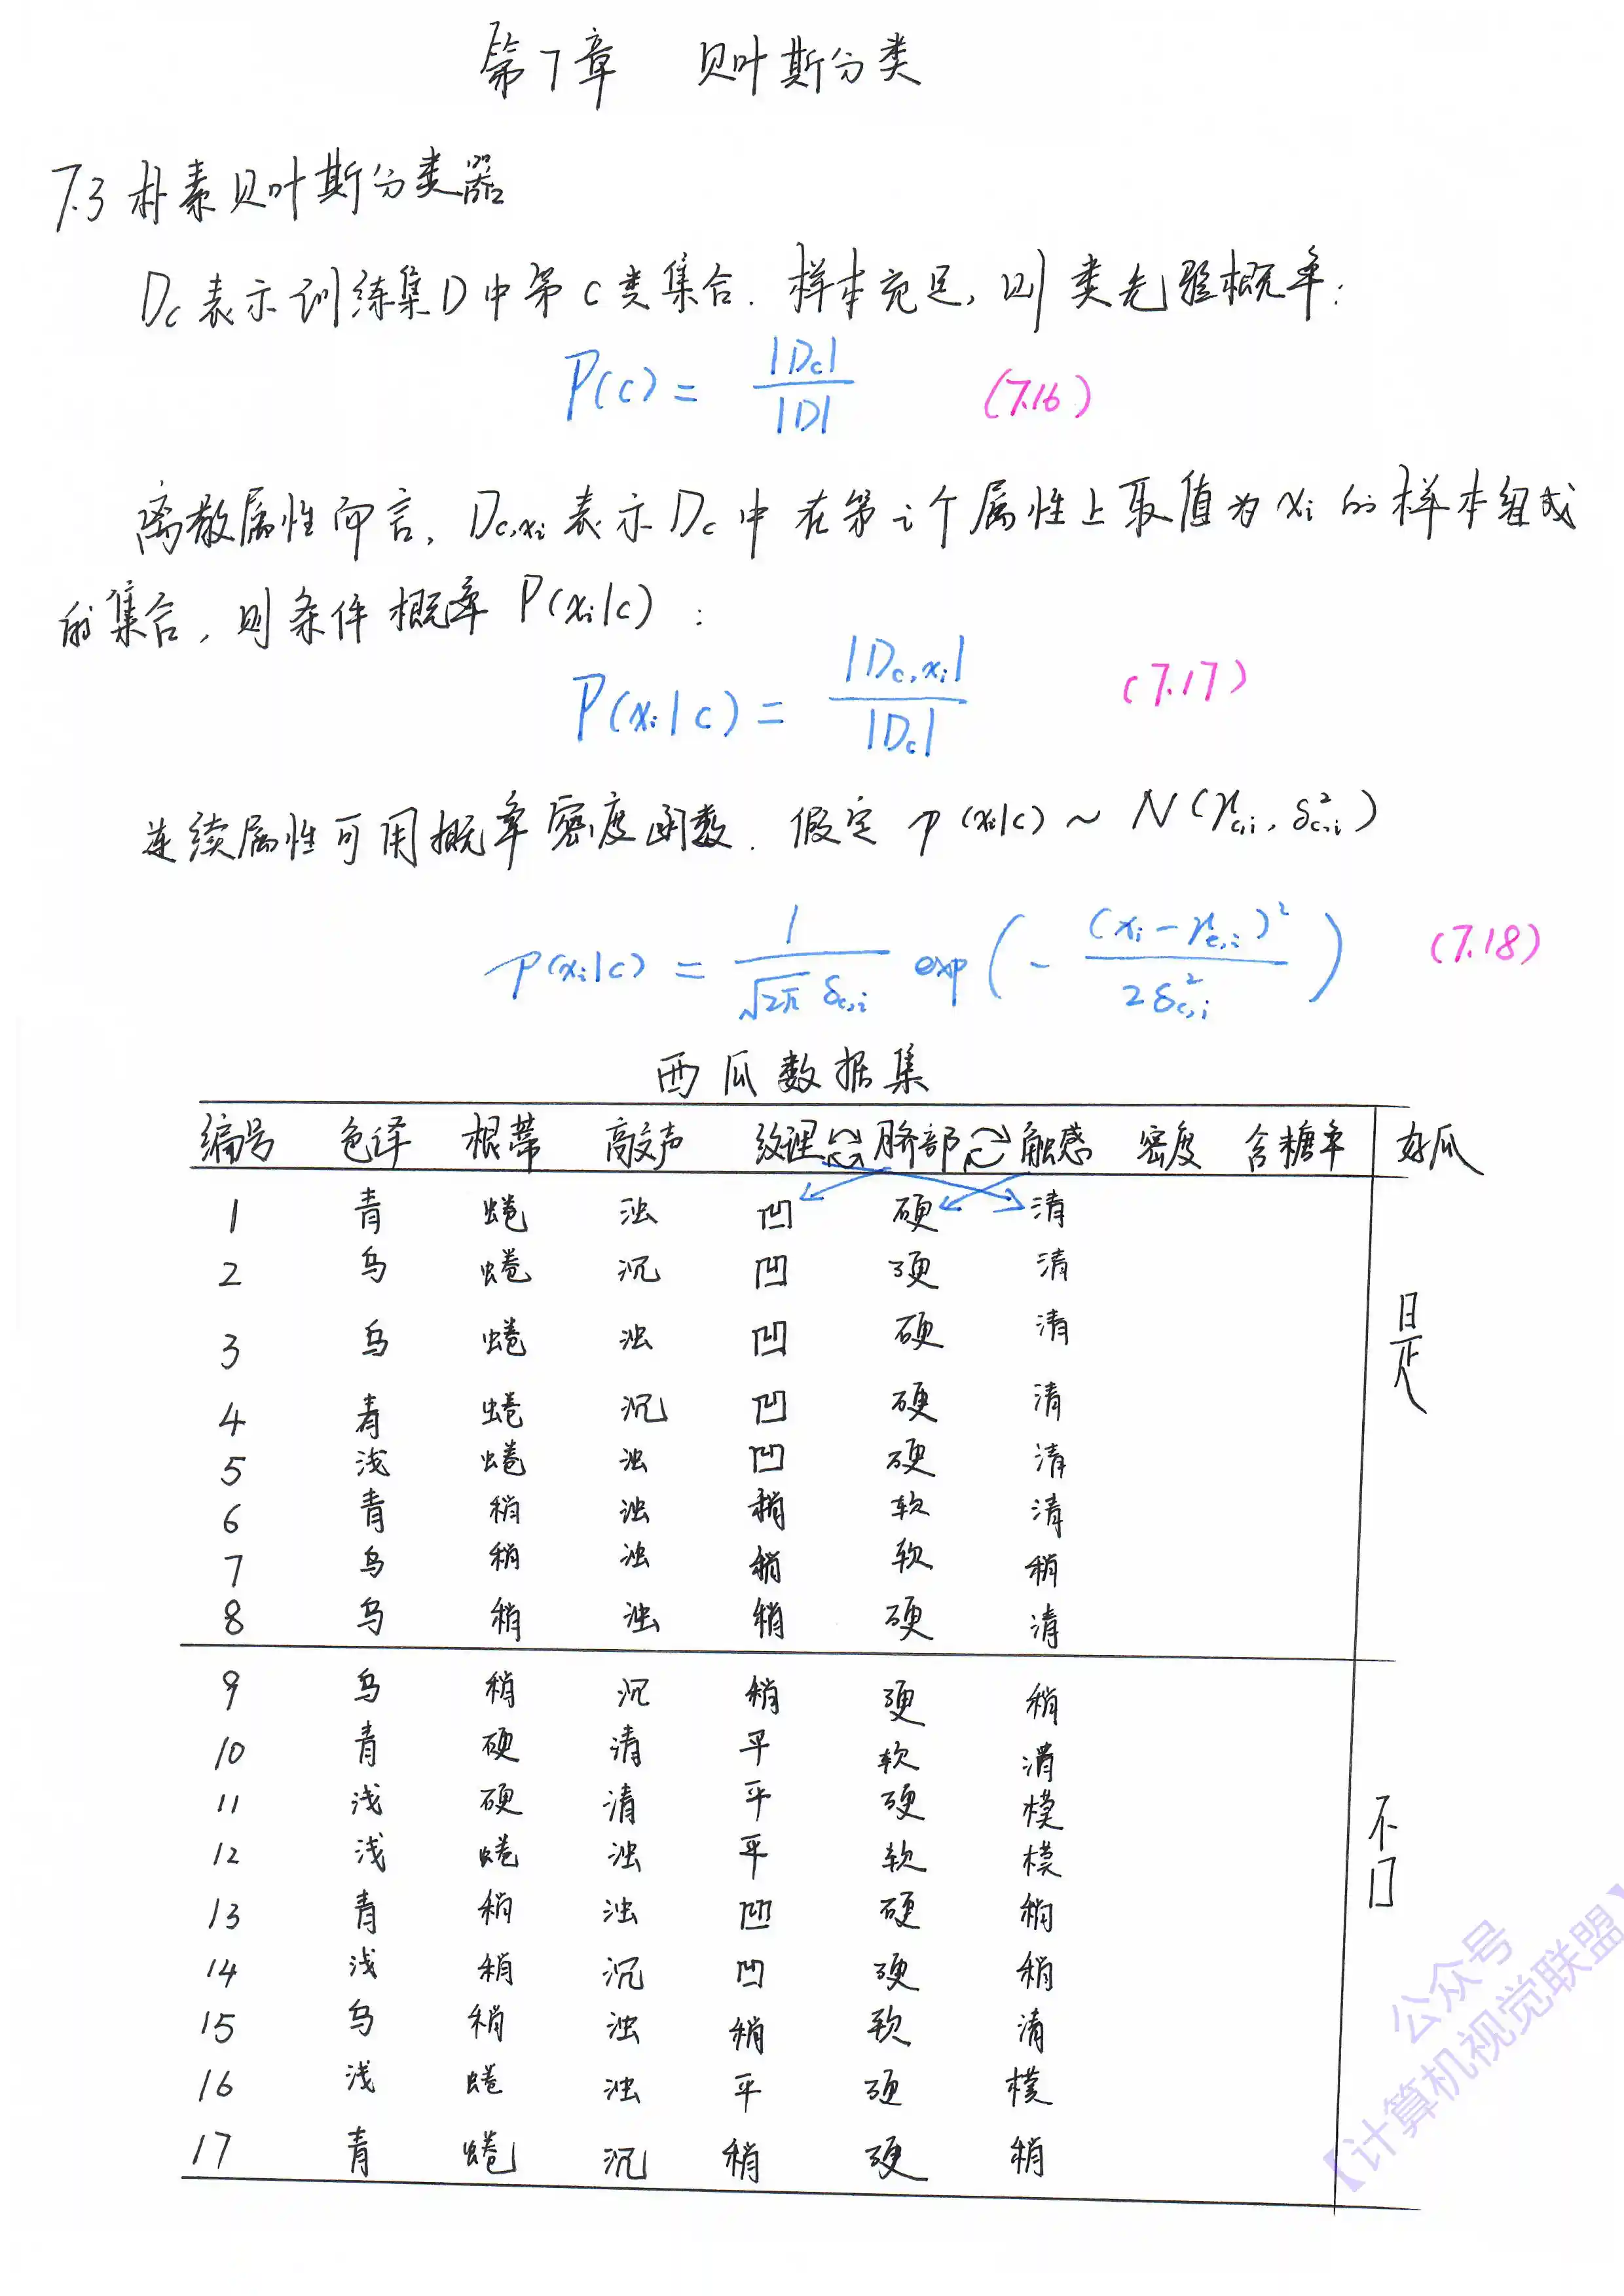 第7章 贝叶斯分类
7.3 朴素贝叶斯分类器
Dc表示训练集D中第c类集合. 样本充足, 则类先验概率:
P(c) = |Dc| / |D| (7.16)
离散属性而言, Dc,xi表示Dc中在第i个属性上取值为xi的样本组成
的集合, 则条件概率 P(xi|c) :
P(xi|c) = |Dc,xi| / |Dc| (7.17)
连续属性可用概率密度函数. 假定 p(xi|c) ~ N(μc,i, δ²c,i)
p(xi|c) = 1 / (√2π δc,i) exp(- (xi-μc,i)² / 2δ²c,i) (7.18)
西瓜数据集
编号 色泽 根蒂 敲声 纹理 脐部 触感 密度 含糖率 好瓜
1 青 蜷 浊 凹 硬 清
2 乌 蜷 沉 凹 硬 清
3 乌 蜷 浊 凹 硬 清
4 青 蜷 沉 凹 硬 清
5 浅 蜷 浊 凹 硬 清
6 青 稍 浊 稍 软 清
7 乌 稍 浊 稍 软 稍
8 乌 稍 浊 稍 硬 清
是
9 乌 稍 沉 稍 硬 稍
10 青 硬 清 平 软 清
11 浅 硬 清 平 硬 模
12 浅 蜷 浊 平 软 模
13 青 稍 浊 凹 硬 稍
14 浅 稍 沉 凹 硬 稍
15 乌 稍 浊 稍 软 清
16 浅 蜷 浊 平 硬 模
17 青 蜷 沉 稍 硬 稍
否
公众号
【计算机视觉联盟】